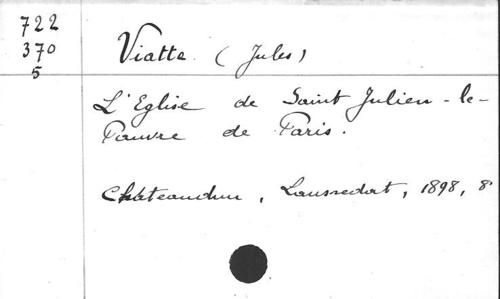 722
370
5
Viatte (Jules)
L'Eglise de Saint Julien-le-
Pauvre de Paris.
Châteaudun, Laussedat, 1898, 8°